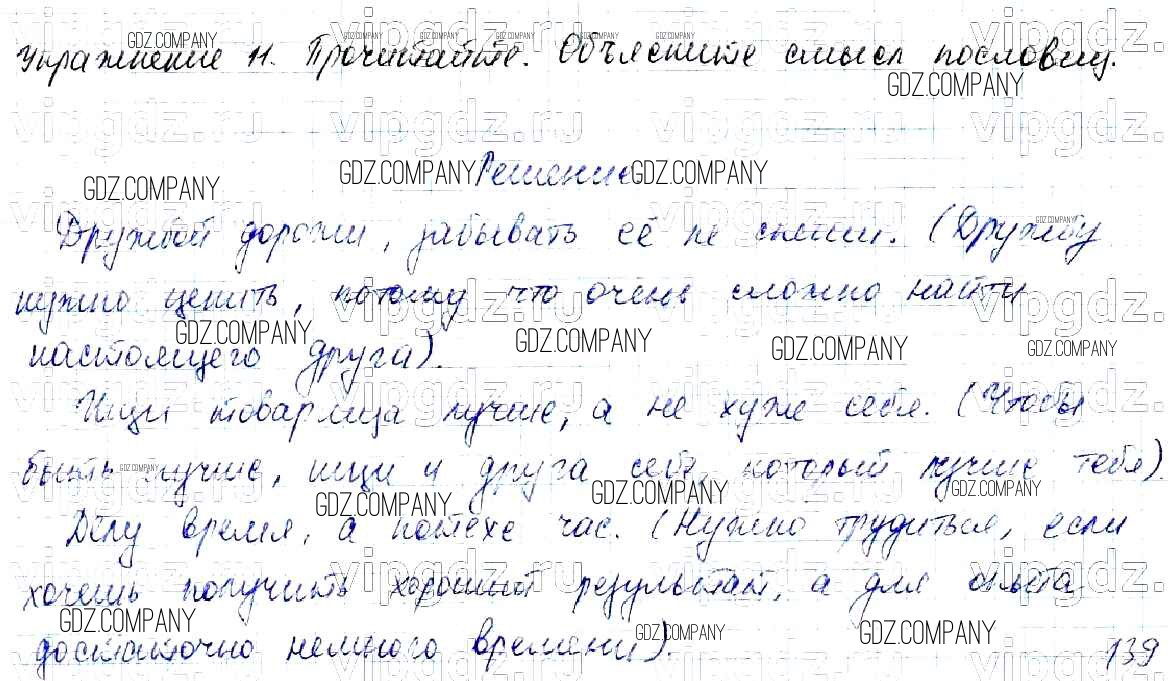 Упражнение 11. Прочитайте. Объясните смысл пословиц.
Решение
Дружбой дорожи, забывать её не спеши. (Дружбу
нужно ценить, потому что очень сложно найти
настоящего друга).
Ищи товарища лучше, а не хуже себя. (Чтобы
быть лучше, ищи и друга себе, который лучше тебя).
Делу время, а потехе час. (Нужно трудиться, если
хочешь получить хороший результат, а для опыта
достаточно немного времени).
139